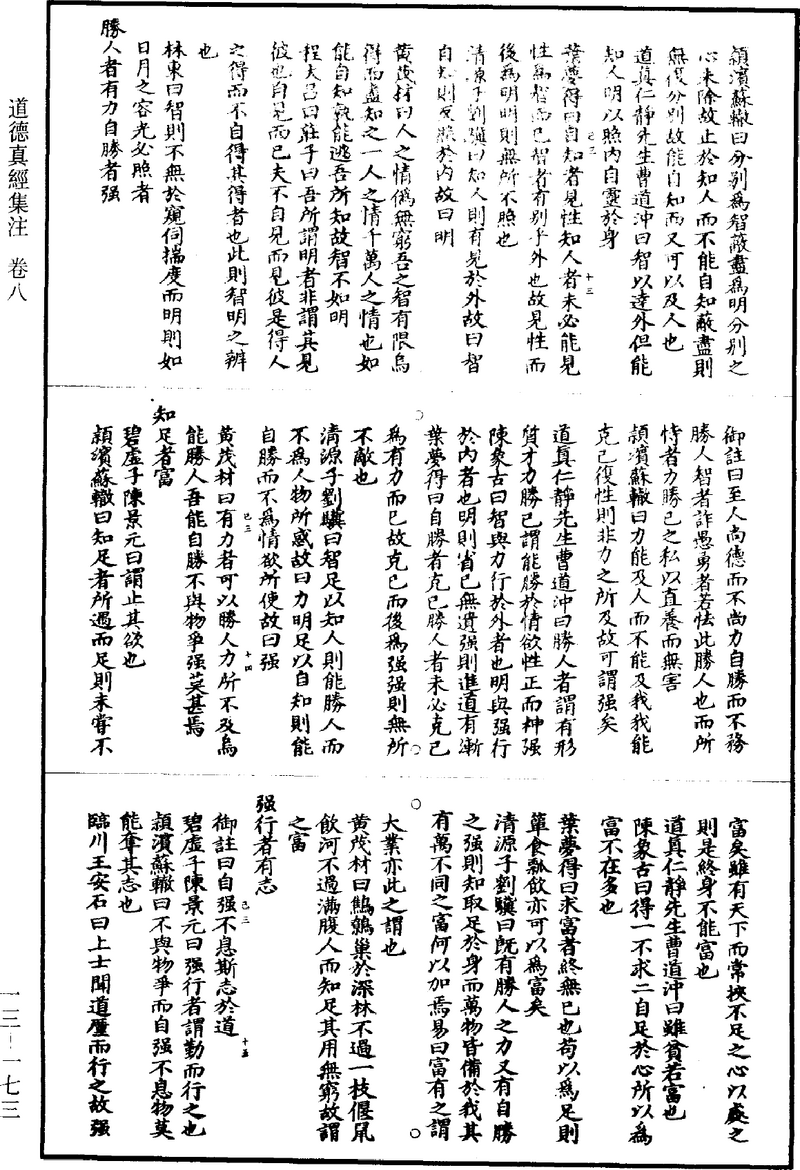 道德真經集注　卷八
潁濱蘇轍曰分别爲智蔽盡爲明分别之
心未除故止於知人而不能自知蔽盡則
無復分别故能自知而又可以及人也
道真仁靜先生曹道沖曰智以達外但能
知人明以照內自靈於身
葉夢得曰自知者見性知人者未必能見
性爲智而已智者有别乎外也故見性而
後爲明明則無所不照也
清源子劉驥曰知人則有見於外故曰智
自知則反照於內故曰明
黄茂材曰人之情僞無窮吾之智有限烏
得而盡知之一人之情千萬人之情也如
能自知孰能逃吾所知故智不如明
程大昌曰莊子曰吾所謂明者非謂其見
彼也自見而已夫不自見而見彼是得人
之得而不自得其得者也此則智明之辨
也
林東曰智則不無於窺伺揣度而明則如
日月之容光必照者
勝人者有力自勝者强
御註曰至人尚德而不尚力自勝而不務
勝人智者詐愚勇者若怯此勝人也而所
恃者力勝己之私以直養而無害
潁濱蘇轍曰力能及人而不能及我我能
克己復性則非力之所及故可謂强矣
道真仁靜先生曹道沖曰勝人者謂有形
質才力勝己謂能勝於情欲性正而神强
陳象古曰智與力行於外者也明與强行
於內者也明則省己無責强則進道有漸
葉夢得曰自勝者克己勝人者未必克己
爲有力而已故克己而後爲强强則無所
不敵也
清源子劉驥曰智足以知人則能勝人而
不爲人物所惑故曰力明足以自知則能
自勝而不爲情欲所使故曰强
黄茂材曰有力者可以勝人力所不及烏
能勝人吾能自勝不與物爭强莫甚焉
知足者富
碧虛子陳景元曰謂止其欲也
潁濱蘇轍曰知足者所遇而足則未嘗不
富矣雖有天下而常挾不足之心以處之
則是終身不能富也
道真仁靜先生曹道沖曰雖貧若富也
陳象古曰得一不求二自足於心所以爲
富不在多也
葉夢得曰求富者終無已也苟以爲足則
簞食瓢飲亦可以爲富矣
清源子劉驥曰既有勝人之力又有自勝
之强則知取足於身而萬物皆備於我其
有萬不同之富何以加焉易曰富有之謂
大業亦此之謂也
黄茂材曰鷦鷯巢於深林不過一枝偃鼠
飲河不過滿腹人而知足其用無窮故謂
之富
强行者有志
御註曰自强不息斯志於道
碧虛子陳景元曰强行者謂勤而行之也
潁濱蘇轍曰不與物爭而自强不息物莫
能奪其志也
臨川王安石曰上士聞道廑而行之故强
一三—一七三